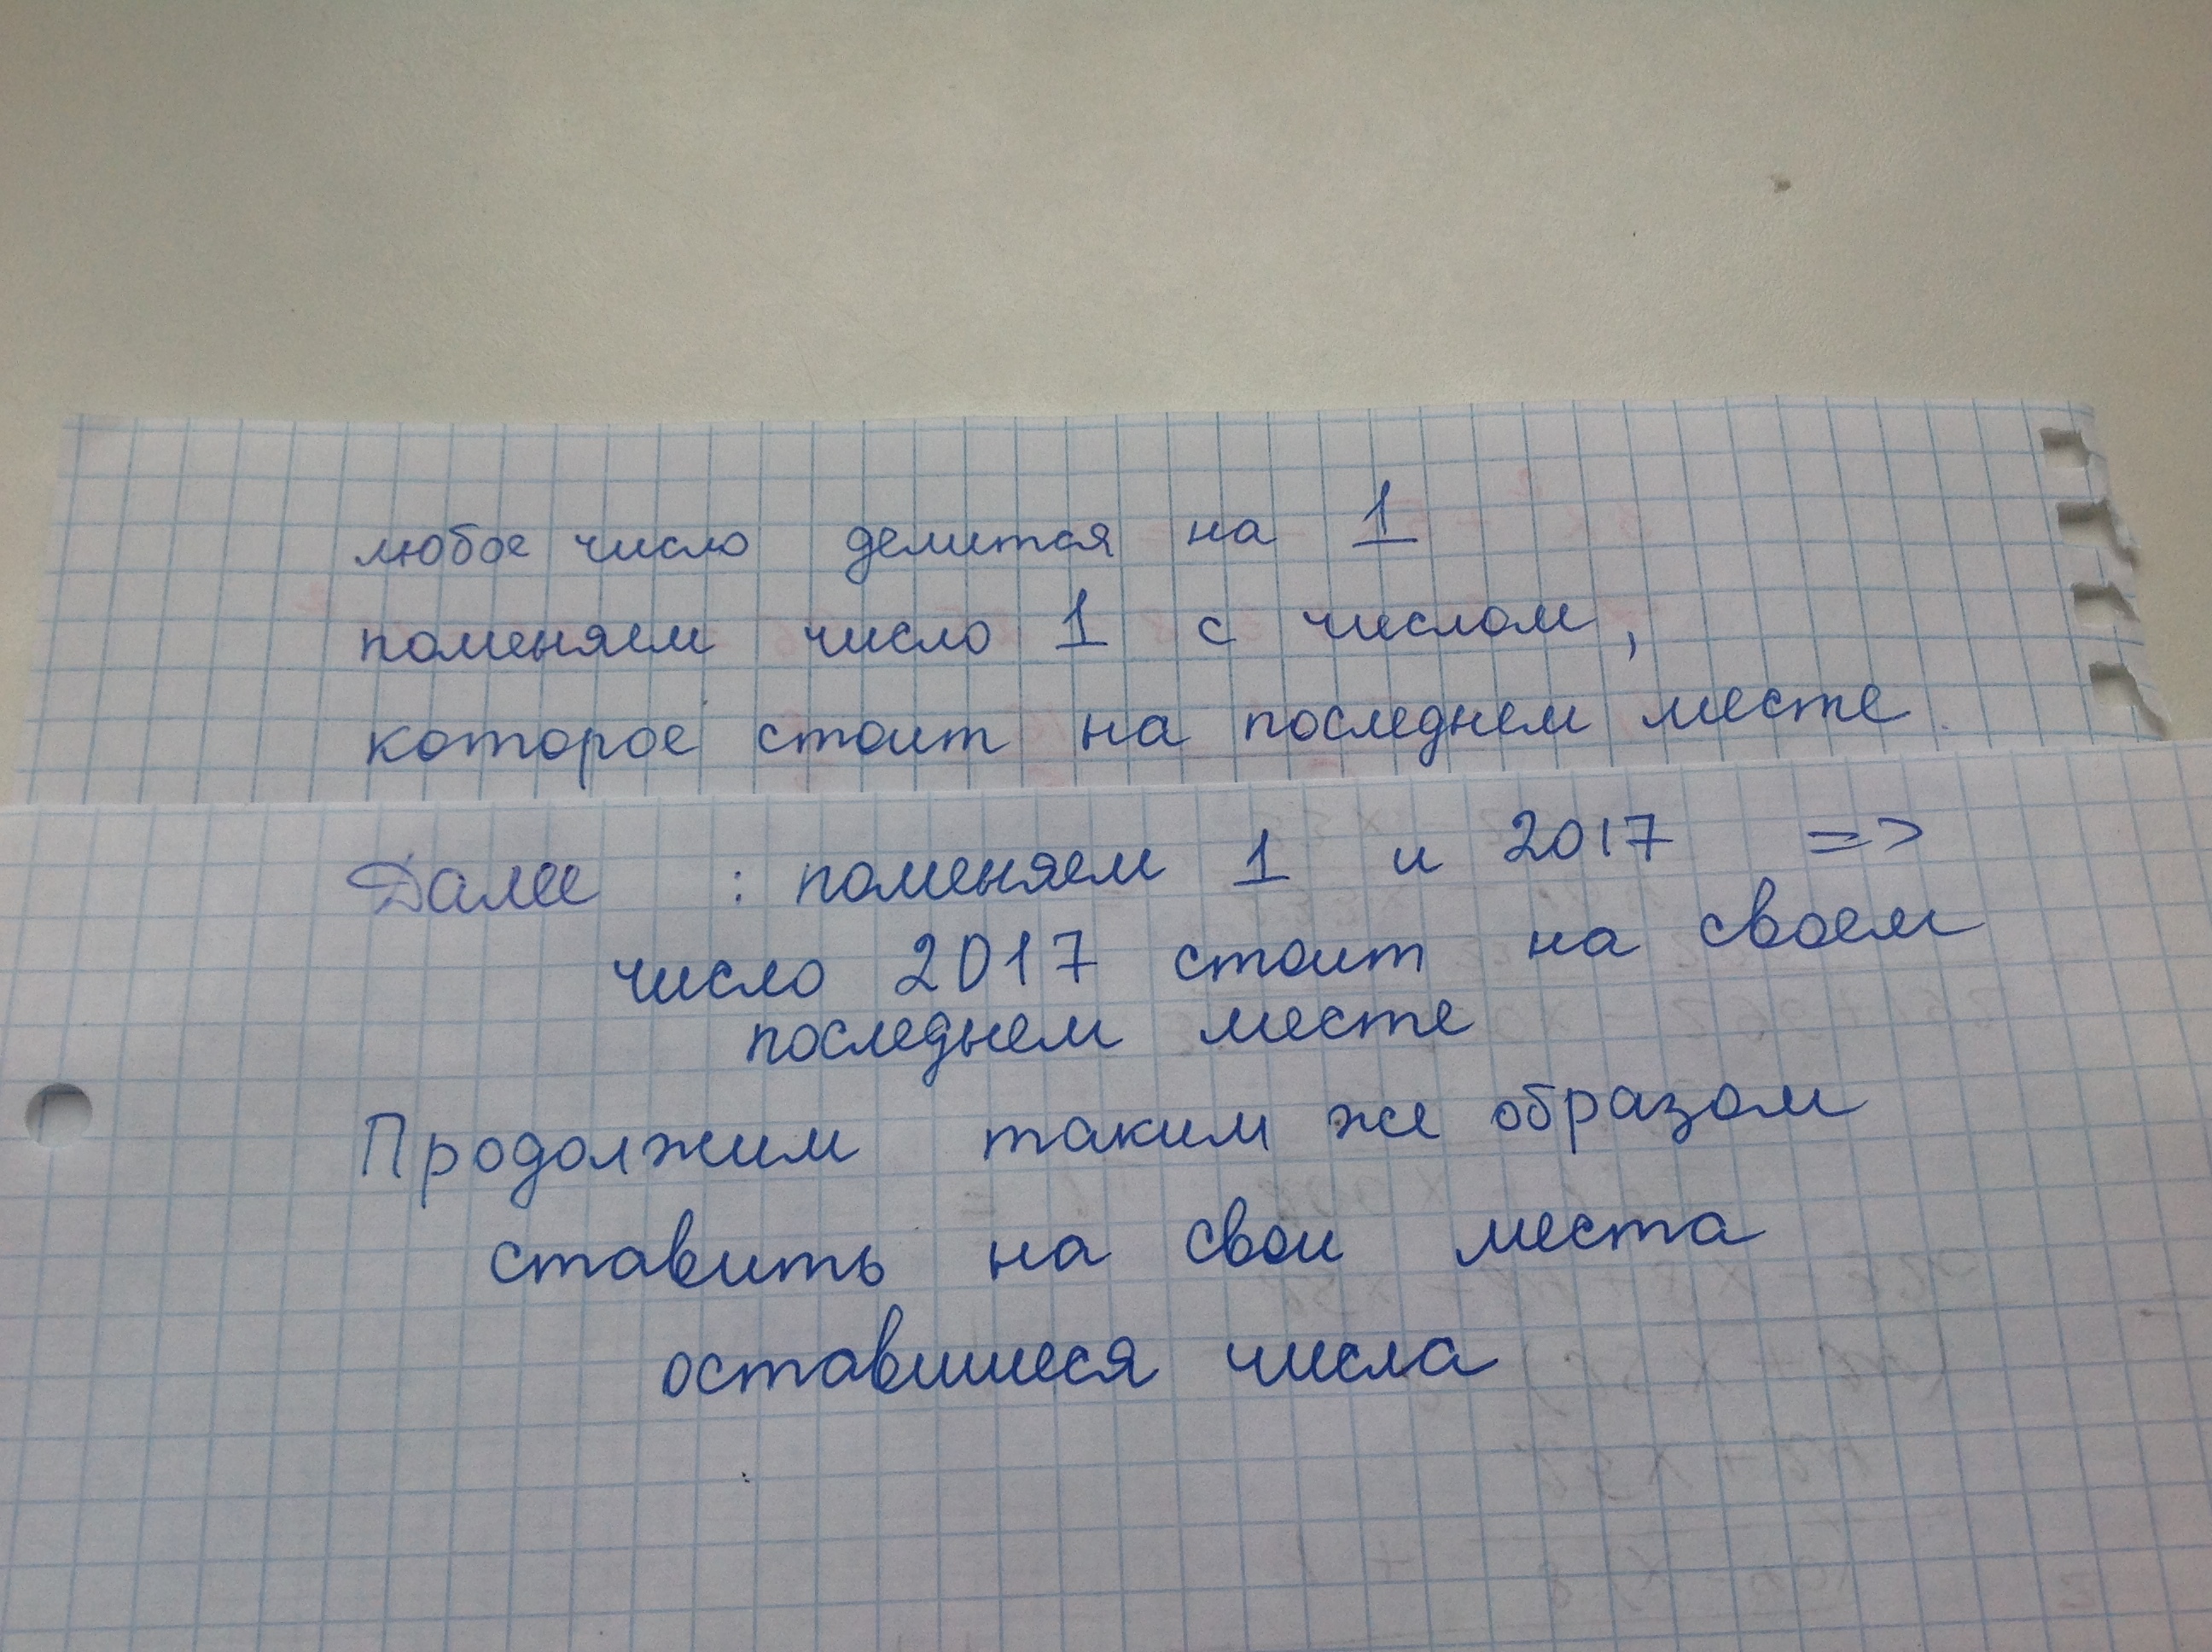 любое число делится на 1
поменяем число 1 с числом,
которое стоит на последнем месте.
Далее : поменяем 1 и 2017 =>
число 2017 стоит на своем
последнем месте
Продолжим таким же образом
ставить на свои места
оставшиеся числа